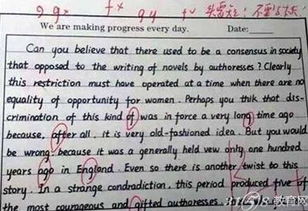 We are making progress every day. Date:
Can you believe that there used to be a consensus in society
that opposed to the writing of novels by authoresses? Clearly
this restriction must have operated at a time when there are no
equality of opportunity for women. Perhaps you thik that dis-
crimination of this kind of was in force a very long time ago
because, after all, it is very old-fashioned idea. But you would
be wrong, because it was a generally held vew only one hundred
years ago in England. Even so there is another twist to this
story. In a strange condradiction, this period produced five of
the most courageous and gifted authoresses.